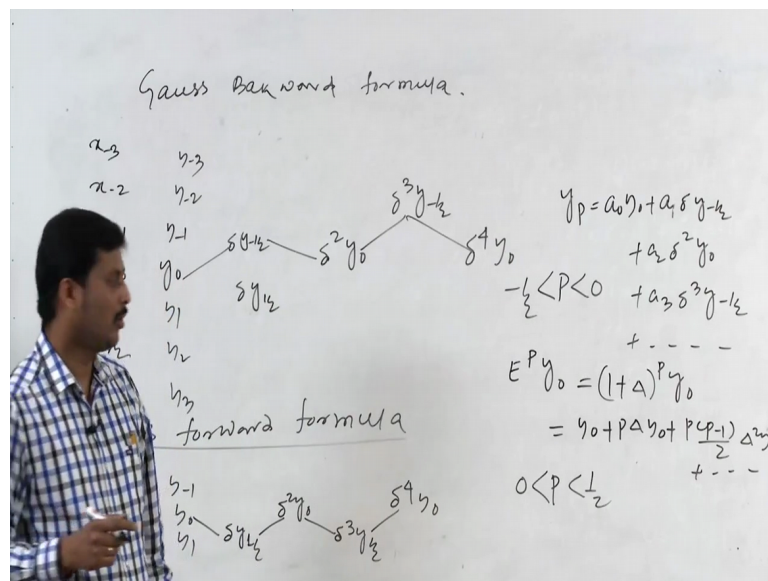 Gauss Bakward formula.
x-3 y-3
x-2 y-2
y-1
y₀ δy-½ δ²y₀ δ³y-½ δ⁴y₀
δy½
y1
y2
y3
yₚ = a₀y₀ + a₁δy-½
+ a₂δ²y₀
-½ < P < 0 + a₃δ³y-½
+ - - - -
Eᴾy₀ = (1+Δ)ᴾy₀
= y₀ + PΔy₀ + P(P-1)/2 Δ²y
+ - - -
0 < P < ½
forward formula
y-1
y₀ δy½ δ²y₀ δ³y½ δ⁴y₀
y1